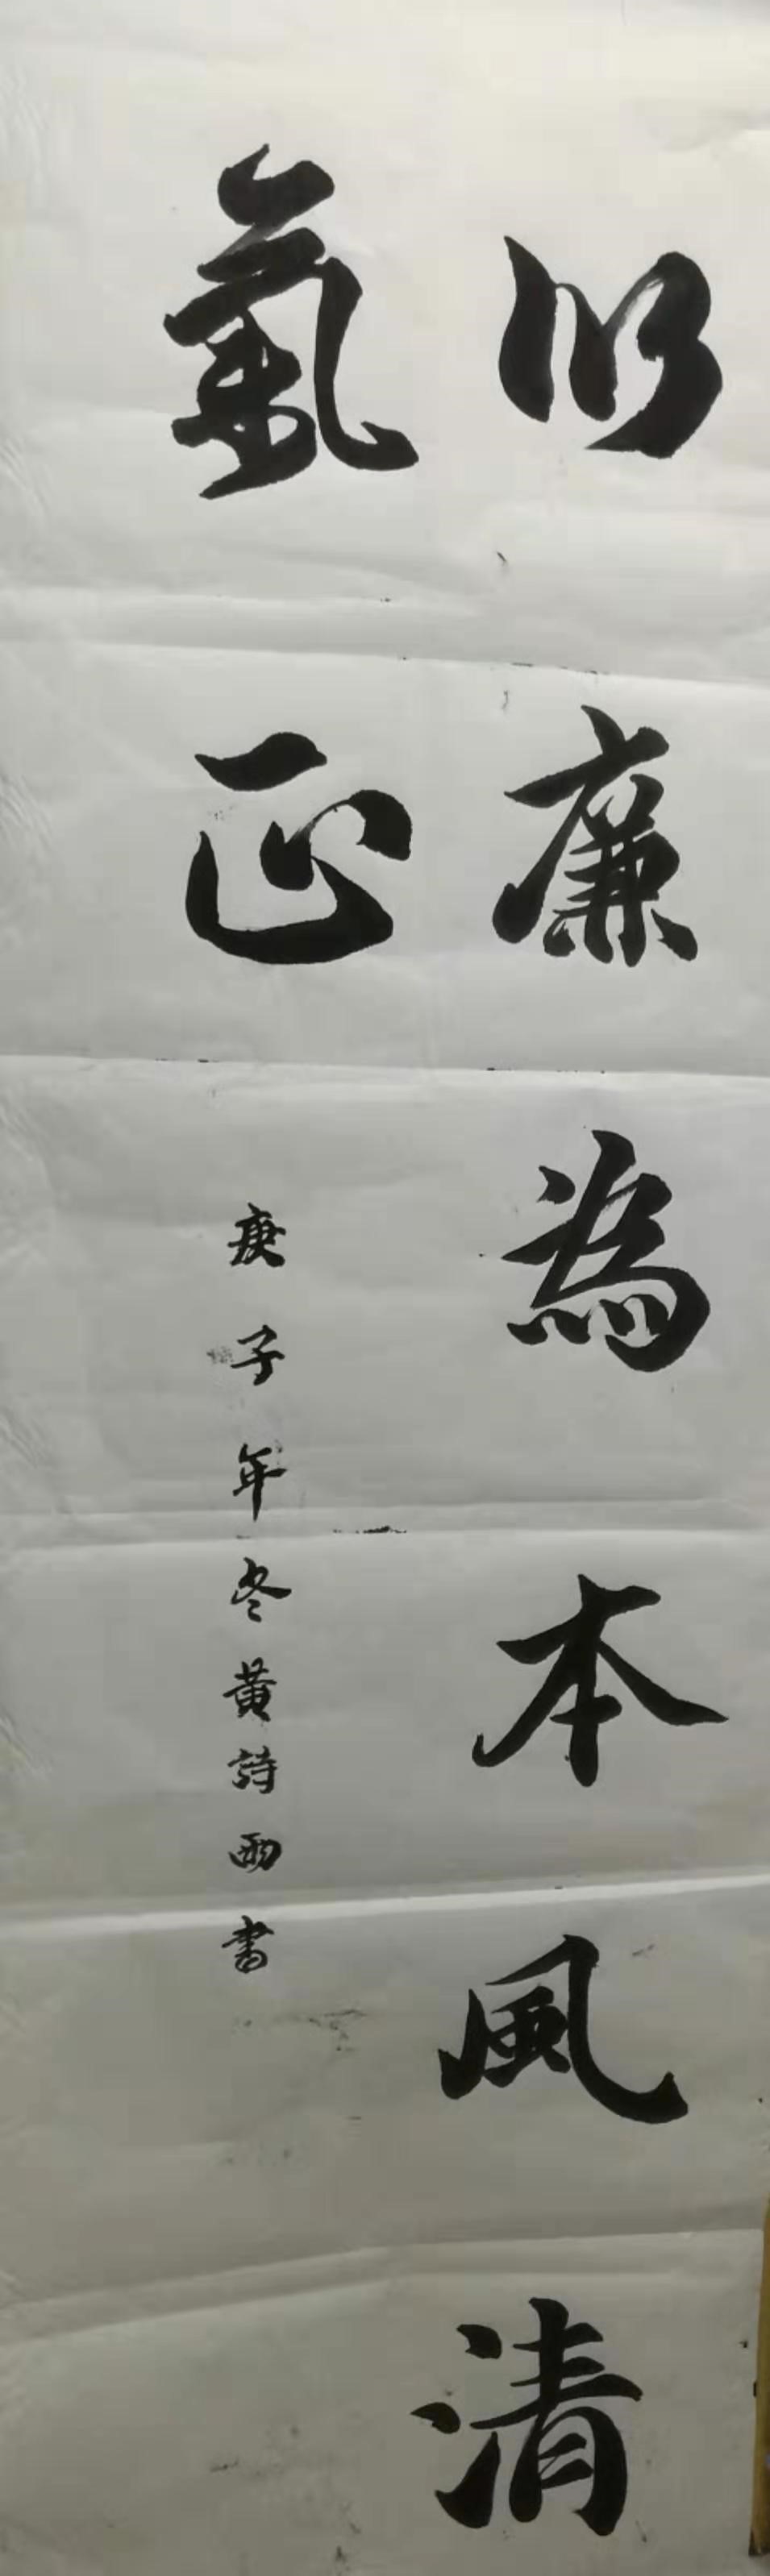 以廉為本風清
氣正
庚子年冬黃詩雨書